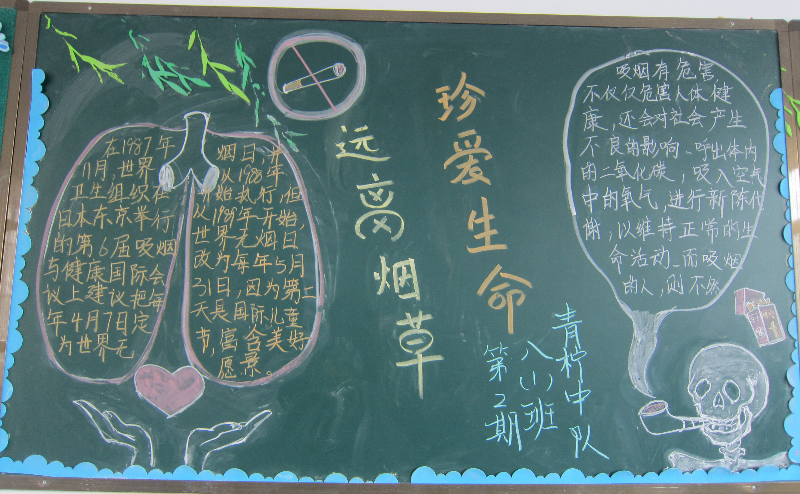 在1987年
11月,世界
卫生组织在
日本东京举行
的第6届吸烟
与健康国际会
议上建议把每
年4月7日定
为世界无
烟日,并
从1988年
开始执行,但
从1989年开始,
世界无烟日
改为每年5月
31日,因为第二
天是国际儿童
节,寓含美好
愿景。
远离烟草
珍爱生命
吸烟有危害
不仅仅危害人体健
康,还会对社会产生
不良的影响、呼出体内
的二氧化碳,吸入空气
中的氧气,进行新陈代
谢,以维持正常的生
命活动、而吸烟
的人,则不然
青柠中队
八(1)班
第2期